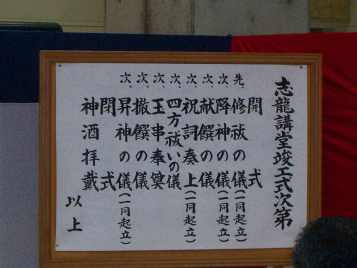 志龍講堂竣工式次第
開式
先、修祓の儀(一同起立)
次、降神の儀(一同起立)
次、献饌の儀
次、祝詞奏上(一同起立)
次、四方祓いの儀
次、玉串奉奠
次、撤饌の儀
次、昇神の儀(一同起立)
閉式
神酒拝戴
以上